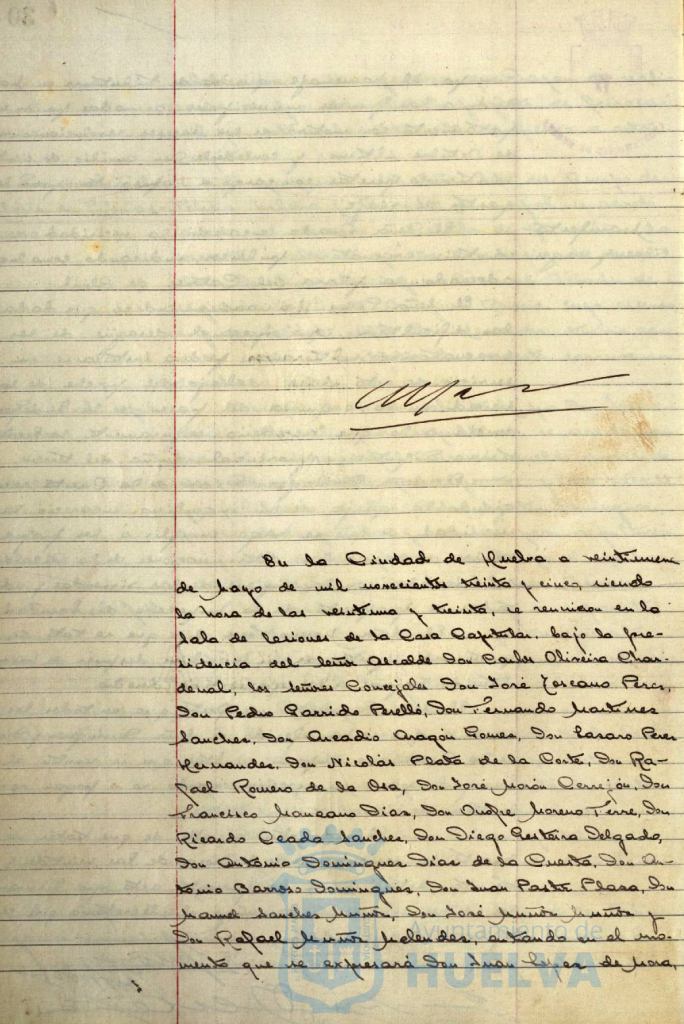 En la Ciudad de Huelva a veintinueve
de Mayo de mil novecientos treinta y cinco, siendo
la hora de las veintiuna y treinta, se reunieron en la
Sala de Sesiones de la Casa Capitular, bajo la pre-
sidencia del Señor Alcalde Don Carlos Oliveira Char-
denal, los señores Concejales Don José Toscano Perez,
Don Pedro Garrido Perelló, Don Fernando Martinez
Sanchez, Don Arcadio Aragón Gomez, Don Lazaro Perez
Hernandez, Don Nicolás Plata de la Corte, Don Ra-
fael Romero de la Osa, Don José Morón Cerrejón, Don
Francisco Manzano Dias, Don Onofre Moreno Ferre, Don
Ricardo Ceada Sanchez, Don Diego Delgado,
Don Antonio Dominguez Dias de la Cuesta, Don An-
tonio Barroso Dominguez, Don Juan Plaza, Don
Manuel Sanchez Muñoz, Don José Muñoz Muñoz y
Don Rafael Muñoz Melendez, entrando en el mo-
mento que se expresará Don Juan Lopez de Mora,
Ayuntamiento de
HUELVA